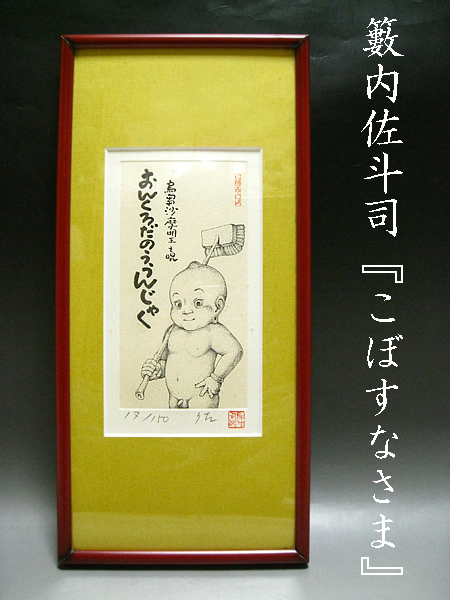 籔内佐斗司『こぼすなさま』
烏芻沙摩明王之呪
おんくろだのううんじゃく
17/150 佐